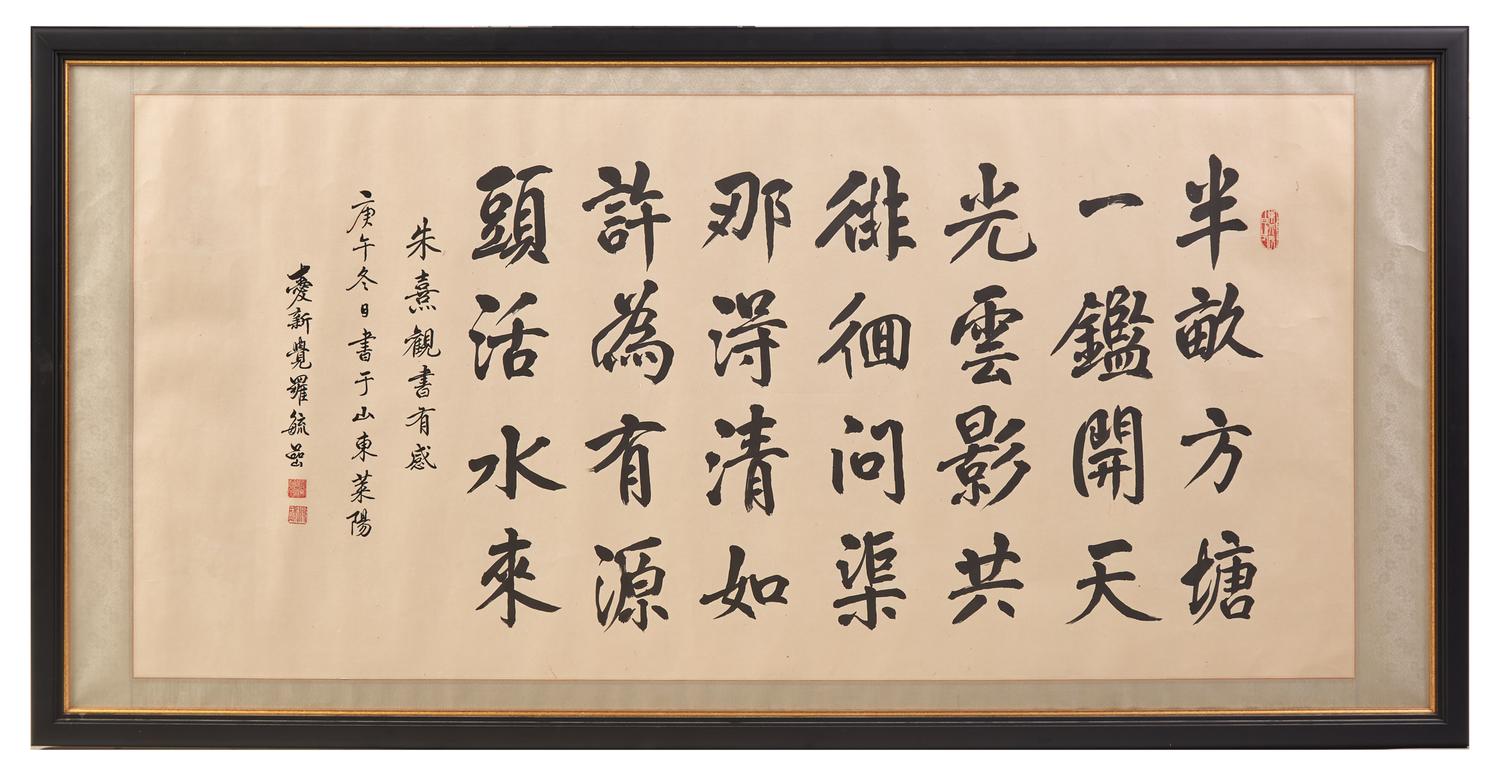 半畝方塘
一鑑開天
光雲影共
徘徊問渠
那得清如
許為有源
頭活水來
朱熹觀書有感
庚午冬日書于山東萊陽
愛新覺羅毓嵒